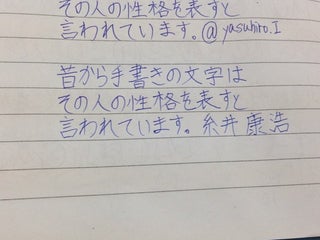 その人の性格を表すと
言われています。@yasuhiro.I
昔から手書きの文字は
その人の性格を表すと
言われています。糸井康浩